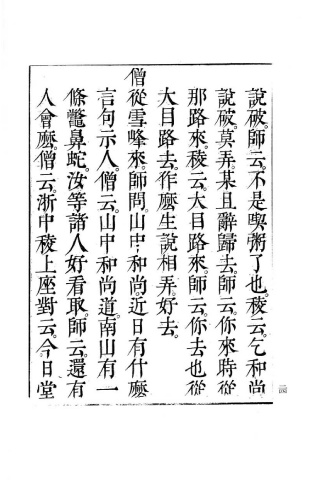 說破。師云。不是喫粥了也。稜云。乞和尚
說破。莫弄。某且辭歸去。師云。你來時從
那路來。稜云。大目路來。師云。你去也從
大目路去。作麼生說相弄。好去。
僧從雪峰來。師問。山中和尚。近日有什麼
言句示人。僧云。山中和尚道。南山有一
條鼈鼻蛇。汝等諸人好看取。師云。還有
人會麼。僧云。浙中稜上座對云。今日堂